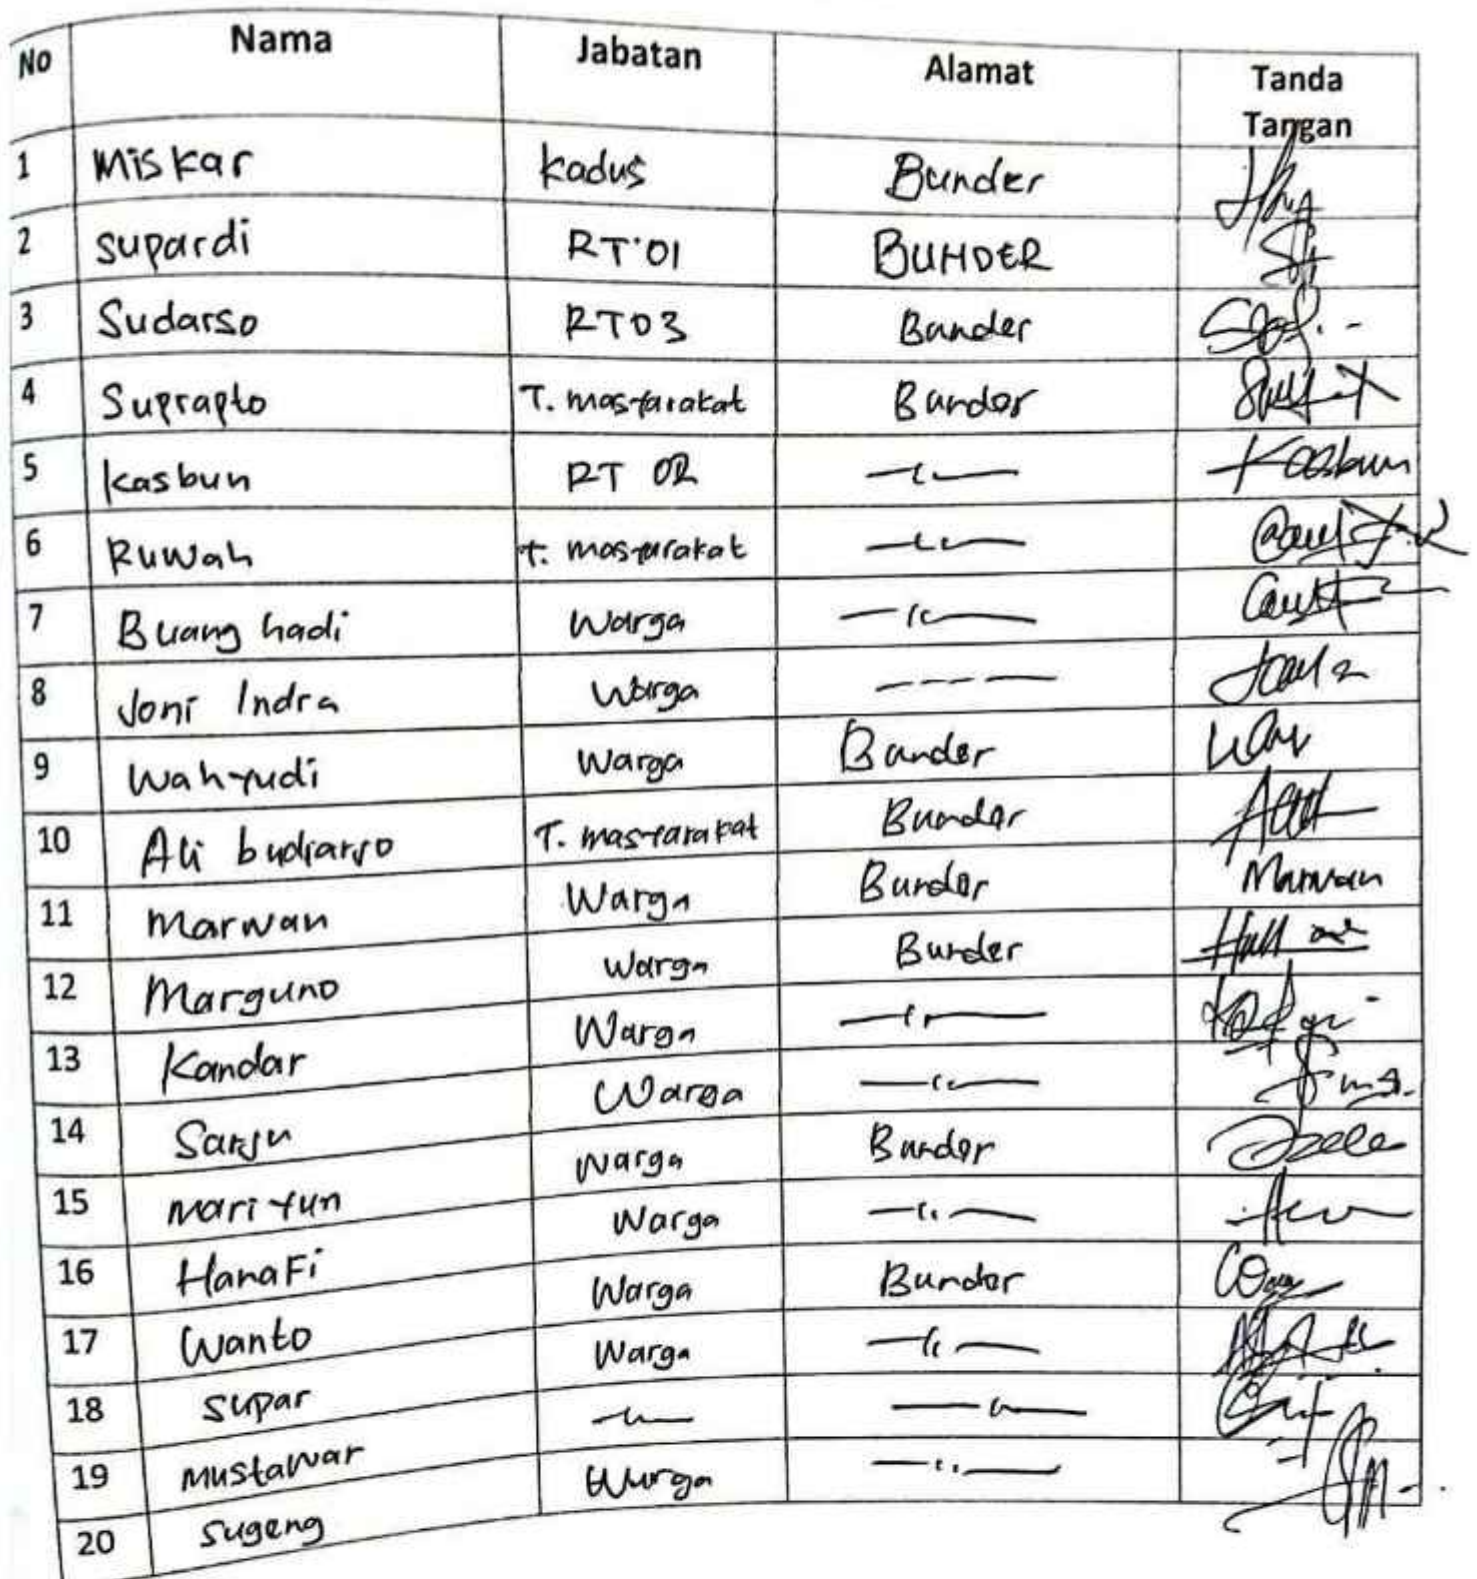 No Nama Jabatan Alamat Tanda Tangan
1 Miskar Kadus Bunder
2 supardi RT'01 BUHDER
3 Sudarso RT03 Bunder
4 Suprapto T. masyarakat Bunder
5 kasbun RT 02 —"— Kasbun
6 Ruwah t. masyarakat —"—
7 Buang hadi Warga —"—
8 Joni Indra Warga ----
9 Wahyudi Warga Bunder
10 Ali budiarso T. masyarakat Bunder
11 Marwan Warga Bunder Marwan
12 Marguno Warga Bunder
13 Kandar Warga —"—
14 Sarju Warga —"—
15 mariyun Warga Bunder
16 HanaFi Warga —"—
17 Wanto Warga Bunder
18 supar Warga —"—
19 mustawar —"— —"—
20 sugeng Warga —"—